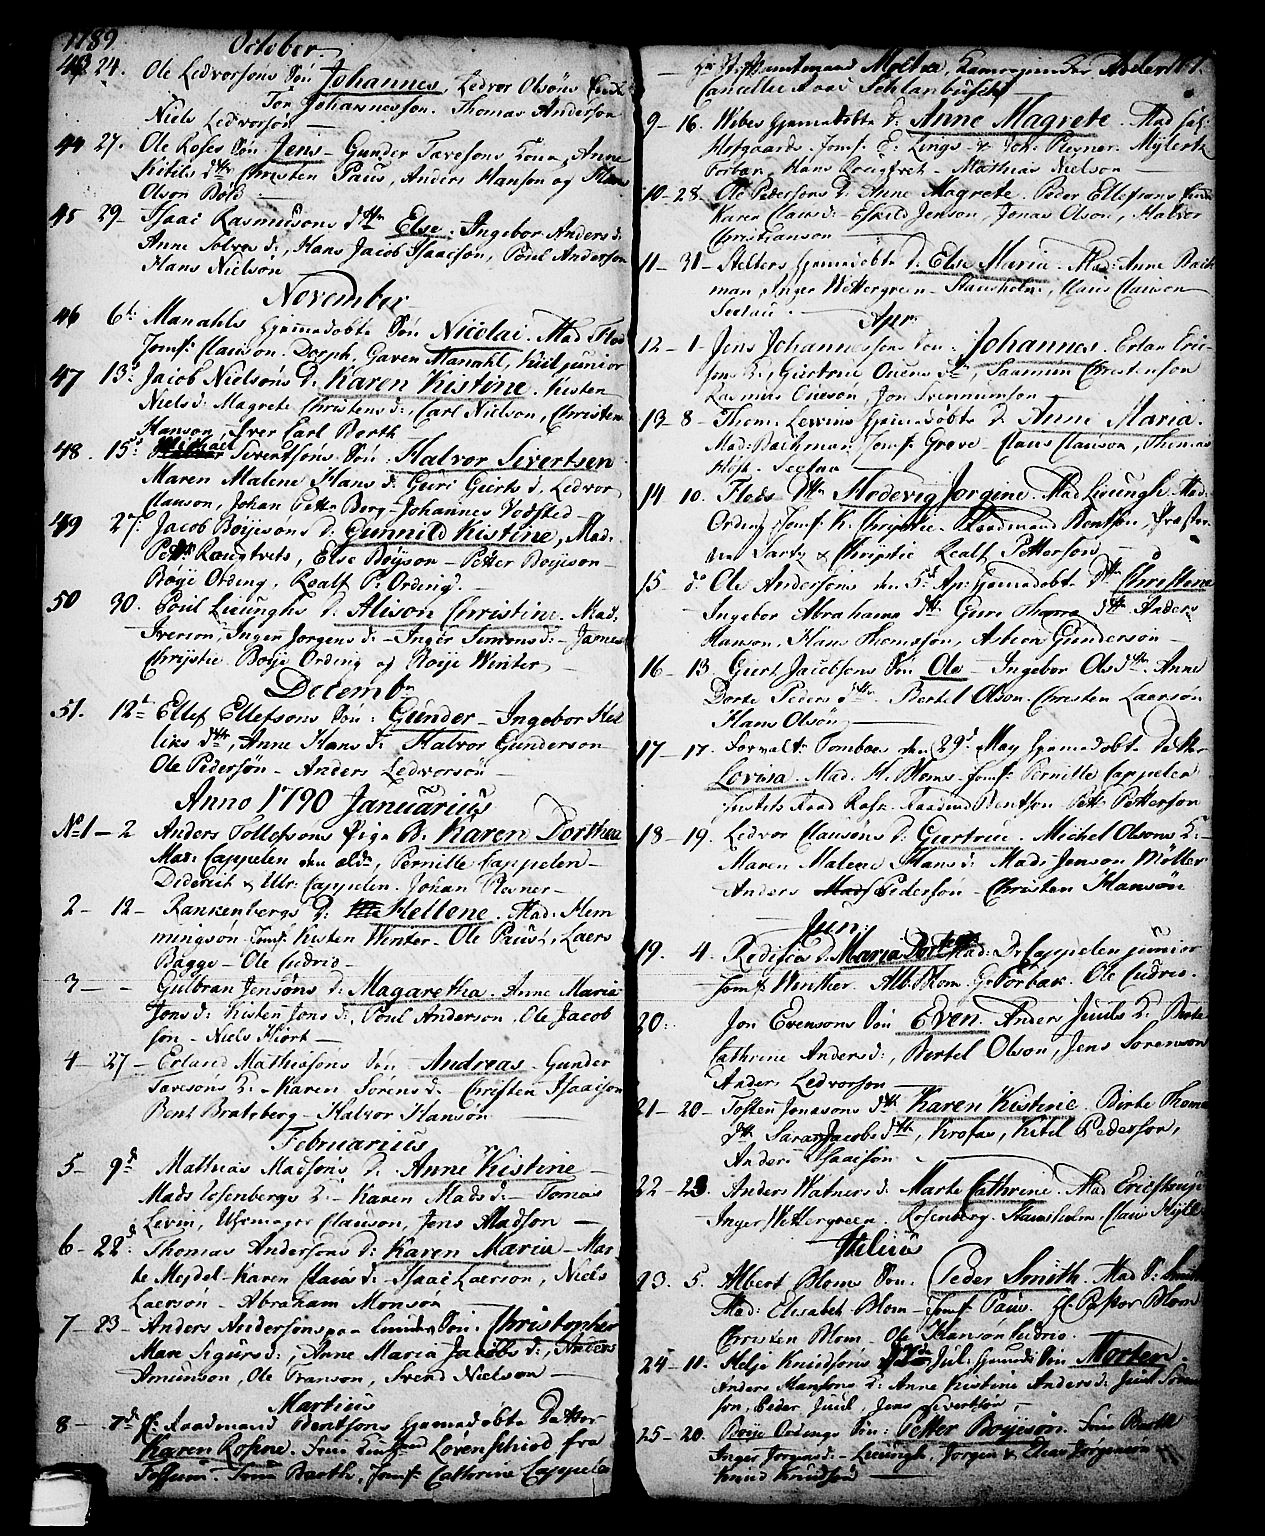 1789 October
43 24. Ole Ledvorsöns Sön Johannes Ledvor Olsöns
Tön Johannesson. Thomas Anderson
Niels Ledvorsön
44 27. Ole Roses Sön Jens - Gunder Tavesons Kona, Anne
Kitils dttr Christen Paus, Anders Hanson og Hans
Olson Böle
45 29 - Isaac Rasmusons dttr Else. Ingebor Anders d:
Anne Solves d:, Hans Jacob Isaacson, Poul Anderson
Hans Nielsön
November
46 6t: Manahls hjemedöbte Sön Nicolai. Mad Flod
Jomf: Clauson. Dorph, Garen Manahl, Juul junior
47 13d Jacob Nielsöns d: Karen Kistine. Kisten
Niels d: Magrete Christens d: Carl Nielson, Christen
Hanson, Iver Carl Barth
48. 15d Michael Sivertsöns Sön Halvor Sivertsen
Maren Malene Hans d: Guri Giærts d. Ledvor
Clauson, Johan Petter Berg - Johannes Vodsted
49 27. Jacob Boyesons d: Gunnild Kistine, Mad.
Petter Raugtvets, Else Böyson - Petter Boyeson -
Boye Ording. Realf P. Ording.
50 30. Poul Liuunghs d: Alison Christine. Mad.
Iverson, Inger Jorgens d: - Inger Simons d: - James
Chrystie. Boye Ording og Boye Winter
Decembr
51. 12t Ellef Ellefsons Sön: Gunder - Ingebor Kel-
liks dttr, Anne Hans d: Halvor Gunderson
Ole Pedersön - Anders Ledvorsön
Anno 1790 Januarius
No 1 - 2 Anders Tollefsons d: Karen Dorthea
Mad: Cappelen den ældr, Pernille Cappelen -
Diderich & Ulr: Cappelen. Johan Plesner -
2 - 12 - Rankenbergs d: Hellene. Mad: Hem-
mingsön - Jomf: Kisten Winter - Ole Paus, Laers
Bagge - Ole Cudrio -
3 - - Gulbran Jensöns d: Magaretha. Anne Maria
Jons d: Kisten Jons d: Poul Anderson. Ole Jacob
son - Niels Hiort -
4 - 27 - Erland Mathiasöns Sön Andreas - Gunder
Tavesöns K: - Karen Sörens d: Christen Isaacson
Bent Brateberg - Halvor Hanson
Februarius
5 - 9d Mathias Madsöns d: Anne Kistine -
Mads Isenbergs K: - Karen Mads d: - Tomas
Levin, Uhrmager Clauson, Jens Madson -
6 - 22d Thomas Andersöns d: Karen Maria - Mar-
te Mejdel - Karen Claus d: - Isaac Laerson, Niels
Laersön - Abraham Monsön
7 - 23 - Anders Andersöns paa Sön: Christopher
Mari Sigurs d:, Anne Maria Jacobs d:, Anders
Amunson, Ole Franson, Svend Nielson -
Martius
8 - 7d Hr. Raadmand Bentsöns hjemedöbte Datter
Karen Rosine. Lövenschiod fra
Fossum - Frue Barth, Jomf: Cathrine Cappelen
Moltke, Kammerjunker Adeler
Cancellie Raad Schlanbusch
9 - 16. Wibes hjemmedöbte d: Anne Magrete. Mad
Hofgaards. Jomf: E. Lings - & Joh: Plesner. Mylertz
Forban, Hans Raugtvet - Mathias Nielson
10 - 28. Ole Pedersons d: Anne Magrete. Peder Ellefsons
Karen Claus d: - Eskild Jenson, Jonas Olson, Halvor
Christianson
11 - 31 - Stelters hjemmedöbte d: Else Maria - Mad: Anne Bach
man, Inger Wettergreen - Stausholm, Claus Clauson
Seelau.
Apr:
12 - 1 - Jens Johannessons Sön. Johannes. Erlan Eric-
sons K:, Giertrue Ouens dtr, Saamun Christenson
Rasmus Ouesön, Jon Svennumson -
13 8 - Thom. Lewins hjemedöbte d: Anne Maria.
Mad: Bachman. Jomf: Grove. Claus Clauson, Thomas
Höst. Seelau
14 10. Fleds dttr Hedevig Jorgine. Mad Liuungh. Mad:
Ording, Jomf: K. Chrystie. Raadmand Bentson,
Chrystie Realf Petterson
15 - d: Ole Andersöns den 5d Ap: hjemedöbt dttr Christina
Ingebor Abrahams dtr Guri Thoma dttr Anders
Hanson, Hans Thomsön, Asbiorn Gunderson -
16 - 13. Giert Jacobsons Sön Ole - Ingebor Ols dttr - Anne
Dorte Peders dttr - Bertel Olson. Christen Laersön
Hans Olsön
17 - 17. Forvalt: Tomboes den 29d May hjemedöbte datter
Lovisa. Mad. H. Bloms - Jomf: Pernille Cappelen
Justits Raad Rosk. Raadmd Bentson Pett: Petterson
18 - 19. Ledvor Clausöns d: Giertrue. Michel Olsons K: -
Maren Malene Hans d: Mad: Jenson Möller
Anders Pedersön - Christen Hansön
Jun:
19. 4. Redisies d: Maria Dorthea. Mad: D: Cappelen junior
Jomf: Winther. Alb: Blom. G: Forban. Ole Cudrio.
20: Jon Evensons Sön Even. Anders Juuls K: Birte
Cathrine Anders d:, Bertel Olson, Jens Sorenson
Anders Ledvorsön -
21 - 20 - Tosten Jonasons dttr Karen Kistine. Birte Thoma
dtr Sara Jacobs dttr, Krofas, Kitil Pederson,
Anders Isaacson -
22 - 23. Anders Watners d: Marte Cathrine. Mad Erichstrup
Inger Wettergreen. Rosenberg. Stausholm. Claus Kyll
Julius
23. 5. Albert Bloms Sön. Peder Smith. Mad: S: Smith
Mad: Elisabet Blom - Jomf: Paus. Hr. Pastor Blom
Christen Blom - Ole Hansön Cudrio.
24 - 11. Helje Knudsöns Jul: hjemd: Sön Morten
Anders Mansöns K: Anne Kistine Anders d: Juul
son, Peder Juul, Jens Sivertsön,
25 - 20. Boye Ordings Sön: Petter Boyeson. Frue Barth
Inger Jorgens d: - Liuungh, Jorgen & Claus Jorgenson
Knud Knudson -